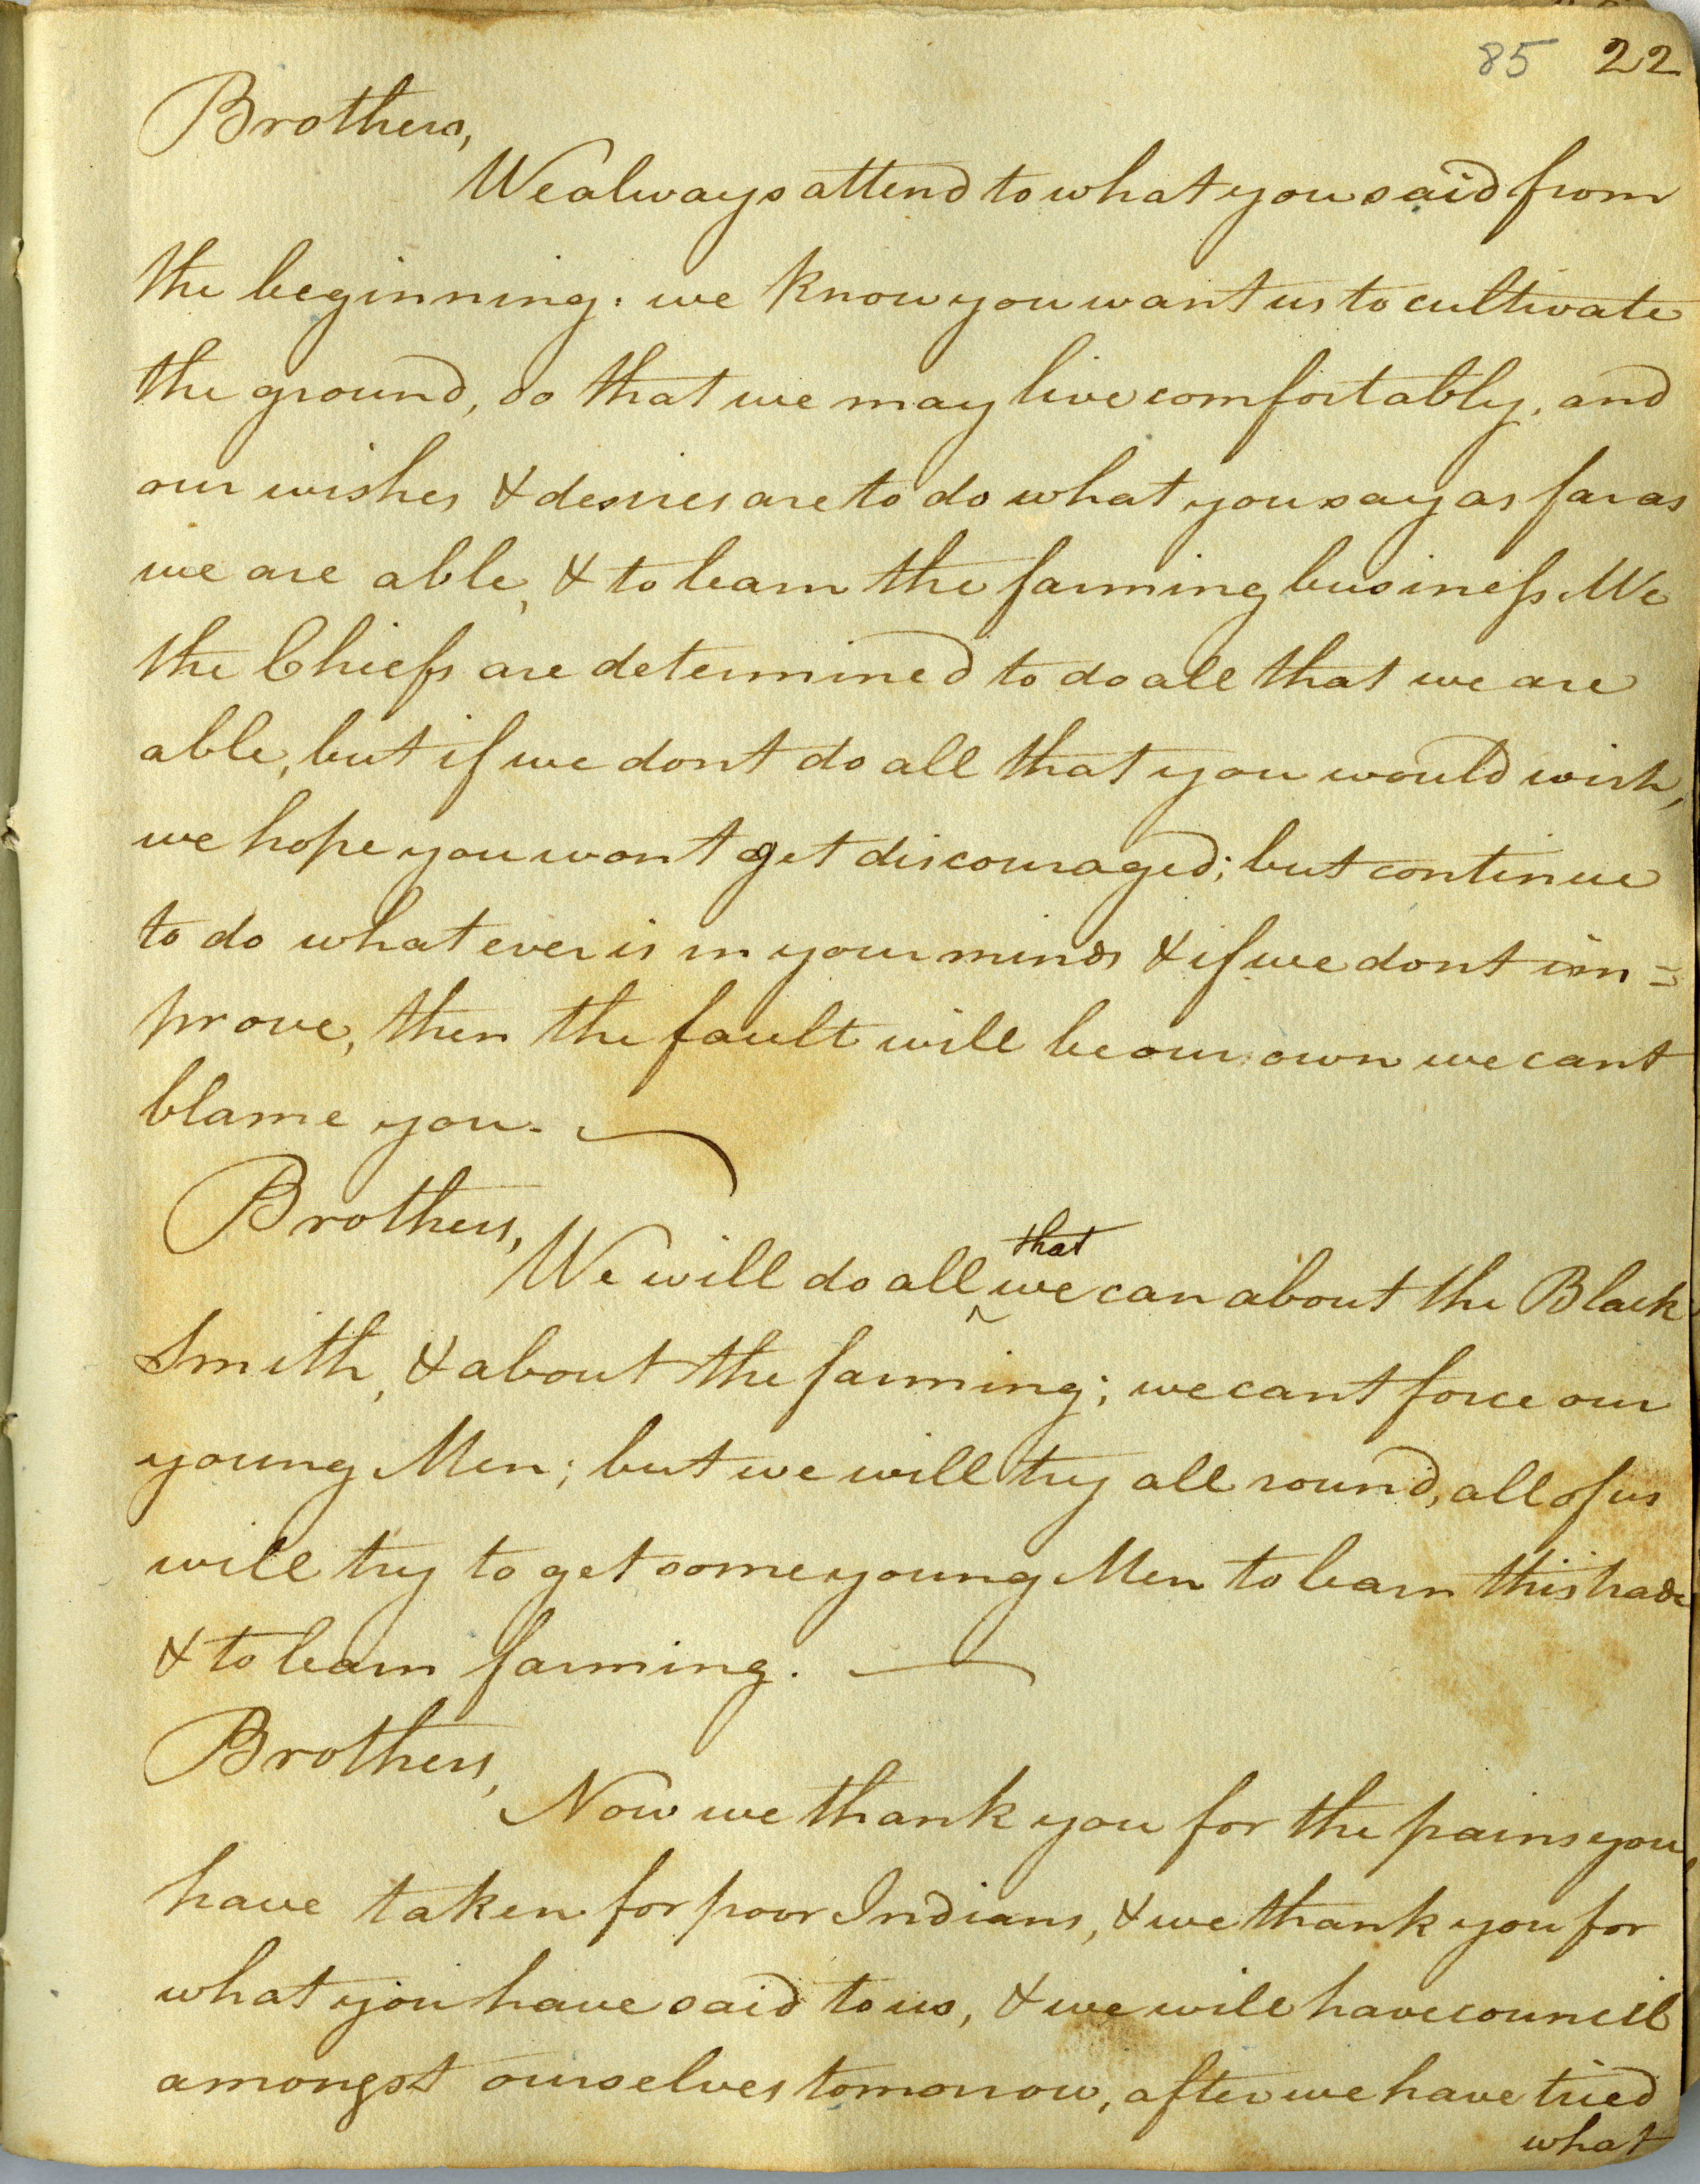 85 22
Brothers,
We always attend to what you said from
the beginning: we know you want us to cultivate
the ground, so that we may live comfortably, and
our wishes & desires are to do what you say as far as
we are able, & to learn the farming business. We
the Chiefs are determined to do all that we are
able, but if we dont do all that you would wish,
we hope you wont get discouraged; but continue
to do what ever is in your minds & if we dont im=
prove, then the fault will be our own we cant
blame you.
Brothers,
that
We will do all ^ we can about the Black
Smith, & about the farming; we cant force our
young Men; but we will try all round, all of us
will try to get some young Men to learn this trade
& to learn farming.
Brothers,
Now we thank you for the pains you
have taken for poor Indians, & we thank you for
what you have said to us, & we will have council
amongst ourselves tomorrow, after we have tried
what